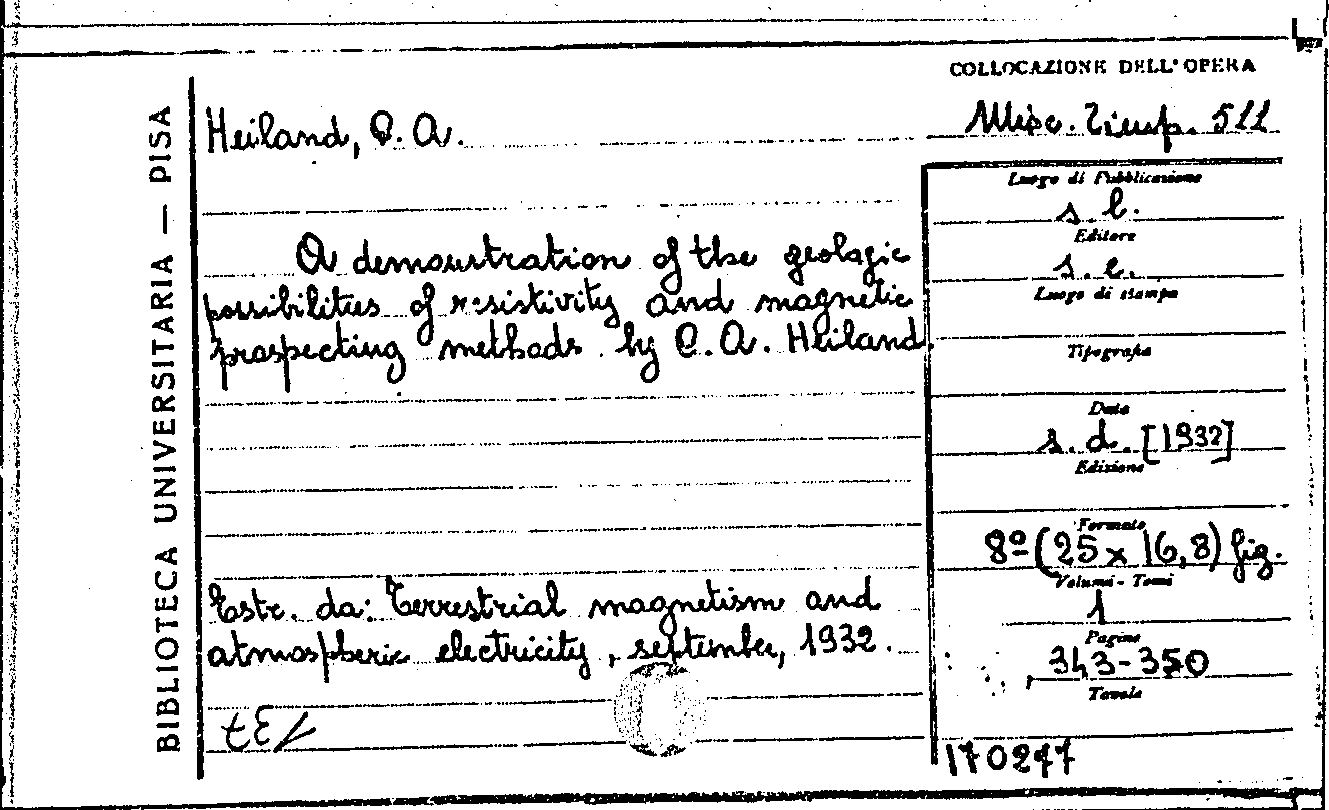 COLLOCAZIONE DELL'OPERA
Misc. Timp. 511
BIBLIOTECA UNIVERSITARIA — PISA
Heiland, C. A.
A demonstration of the geologic
possibilities of resistivity and magnetic
prospecting methods by C. A. Heiland.
Estr. da: Terrestrial magnetism and
atmospheric electricity, september, 1932.
Luogo di Pubblicazione
s. l.
Editore
s. e.
Luogo di stampa
Tipografia
Data
s. d. [1932]
Edizione
Formato
8º (25 x 16,8) fig.
Volumi - Tomi
1
Pagine
343-350
Tavole
170277